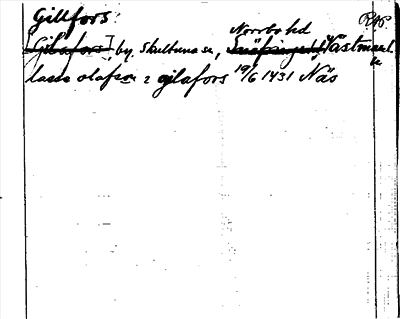 Gillfors
RAP.
Norrbo hd
[Gilafors] by, Skultuna sn, Snäfringe hd, Västmanl.
lasse olafson i gilafors 19/6 1431 Näs